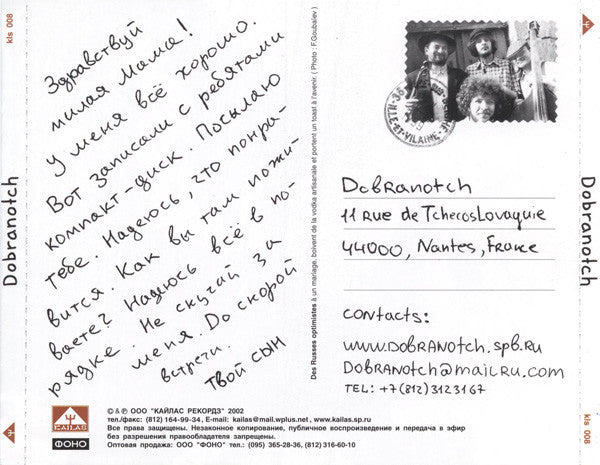 kls 008
Dobranotch
Здравствуй
милая мама!
у меня всё хорошо.
Вот записали с ребятами
компакт-диск. Посылаю
тебе. Надеюсь, что понра-
вится. Как вы там пожи-
ваете? Надеюсь всё в по-
рядке. Не скучай за
меня. До скорой
встречи.
Твой сын
Des Russes optimistes à un mariage, boivent de la vodka artisanale et portent un toast à l'avenir. ( Photo : F.Goubaiev )
TE-ET-VILAINE
Dobranotch
11 rue de Tchecoslovaquie
44000, Nantes, France
contacts:
www.dobranotch.spb.ru
dobranotch@mailru.com
tel: +7(812)3123167
kls 008
Dobranotch
KAILAS
ФОНО
© & ℗ ООО "КАЙЛАС РЕКОРДЗ" 2002
тел./факс: (812) 164-99-34, E-mail: kailas@mail.wplus.net , www.kailas.sp.ru
Все права защищены. Незаконное копирование, публичное воспроизведение и передача в эфир
без разрешения правообладателя запрещены.
Оптовая продажа: ООО "ФОНО" тел.: (095) 365-28-36, (812) 316-60-10